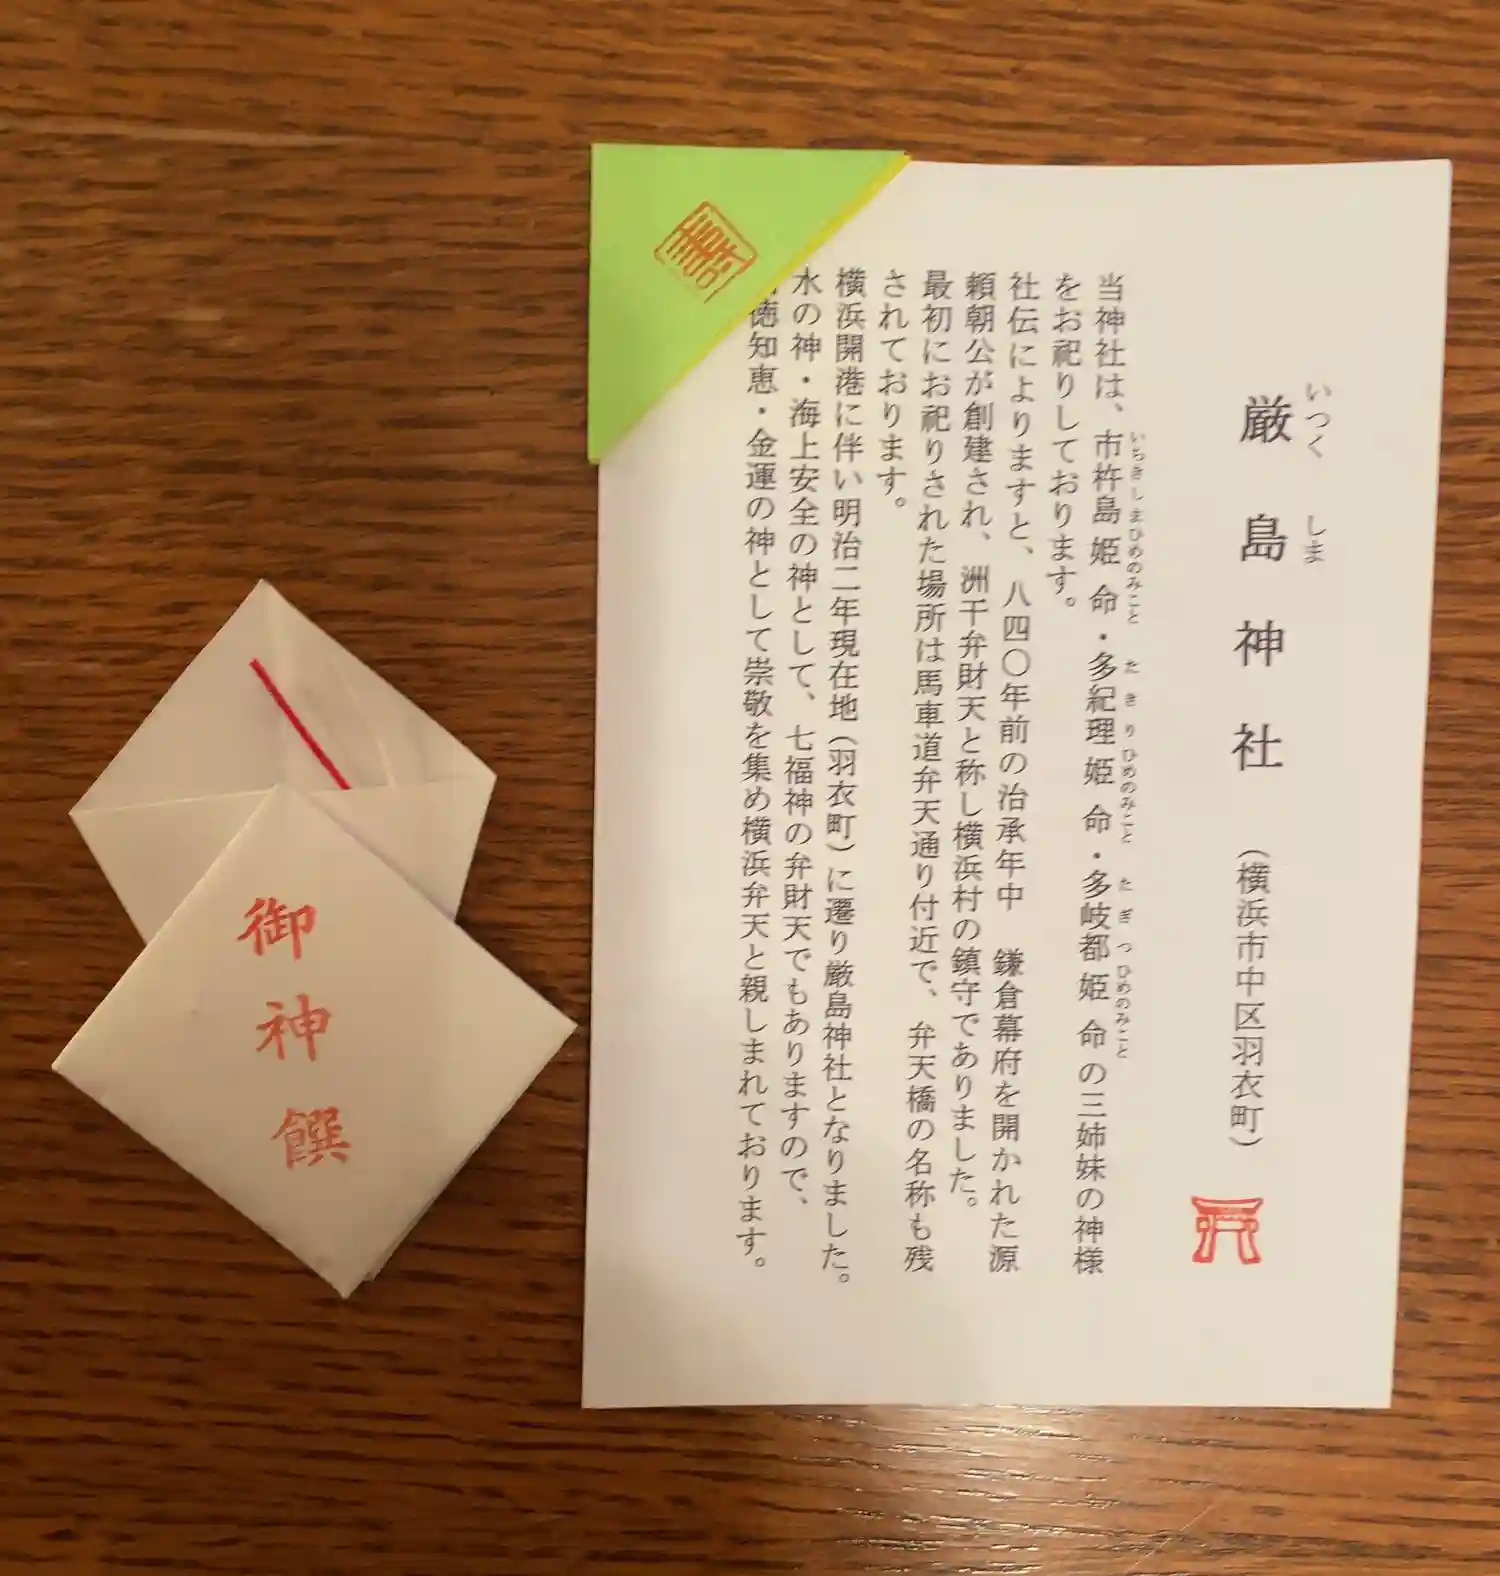 厳島神社（横浜市中区羽衣町）
いつくしま
当神社は、市杵島姫命・多紀理姫命・多岐都姫命の三姉妹の神様
いちきしまひめのみこと たきりひめのみこと たぎつひめのみこと
をお祀りしております。
社伝によりますと、八四〇年前の治承年中 鎌倉幕府を開かれた源
頼朝公が創建され、洲干弁財天と称し横浜村の鎮守でありました。
最初にお祀りされた場所は馬車道弁天通り付近で、弁天橋の名称も残
されております。
横浜開港に伴い明治二年現在地（羽衣町）に遷り厳島神社となりました。
水の神・海上安全の神として、七福神の弁財天でもありますので、
徳知恵・金運の神として崇敬を集め横浜弁天と親しまれております。
寿
御神饌